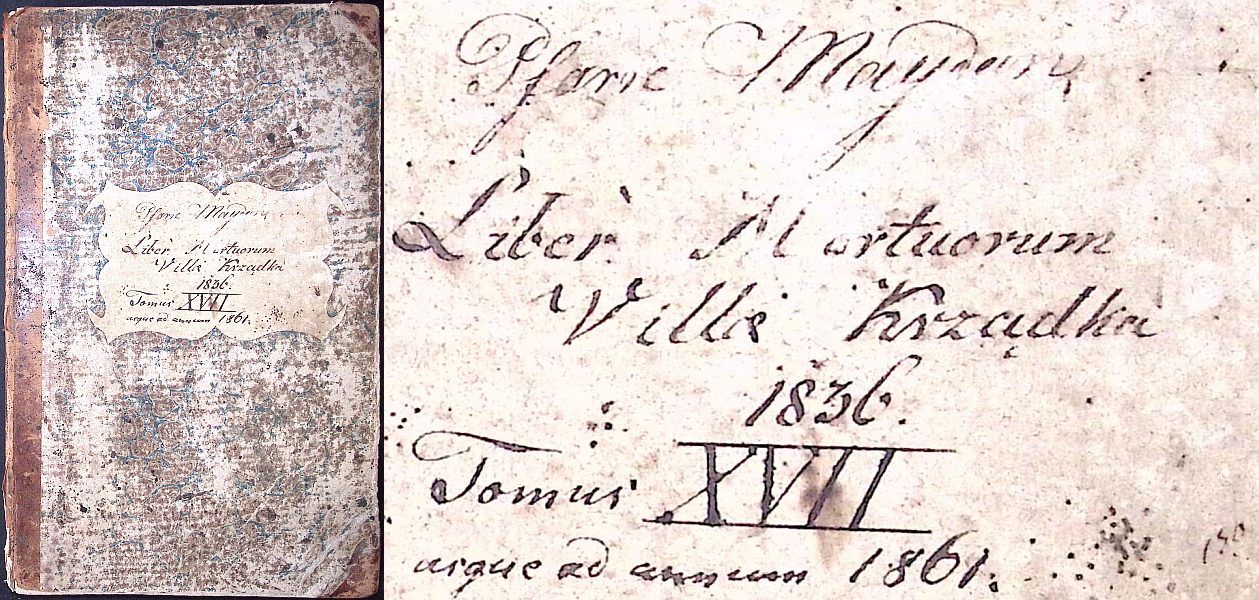 Pfarre Maydan
Liber Mortuorum
Villæ Krządka
1836.
Tomus XVII
usque ad annum 1861.